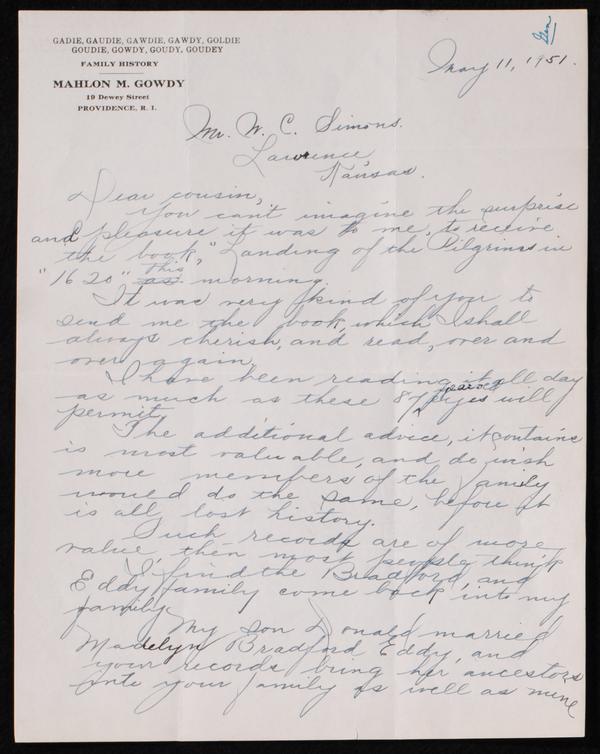 Gen
GADIE, GAUDIE, GAWDIE, GAWDY, GOLDIE
GOUDIE, GOWDY, GOUDY, GOUDEY
FAMILY HISTORY
MAHLON M. GOWDY
19 Dewey Street
PROVIDENCE, R. I.
May 11, 1951.
Mr. W. C. Simons.
Lawrence
Kansas.
Dear cousin,
You can't imagine the surprise
and pleasure it was to me, to receive
the book, "Landing of the Pilgrims in
"1620" as this morning.
It was very kind of you to
send me the book, which I shall
always cherish, and read, over and
over again.
I have been reading it all day
as much as these 87 year old eyes will
permit.
The additional advice, it contains
is most valuable, and do wish
more members of the family
would do the same, before it
is all lost history.
Such records are of more
value, then most people think
I find the Bradford, and
Eddy family come back into my
family.
My son Donald married
Madelyn Bradford Eddy, and
your records bring her ancestors
into your family as well as mine